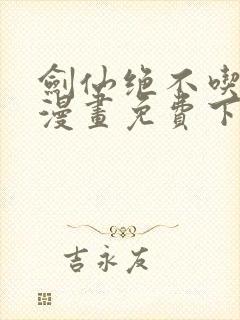 劍仙絶不喫
漫畫免費下
吉永友